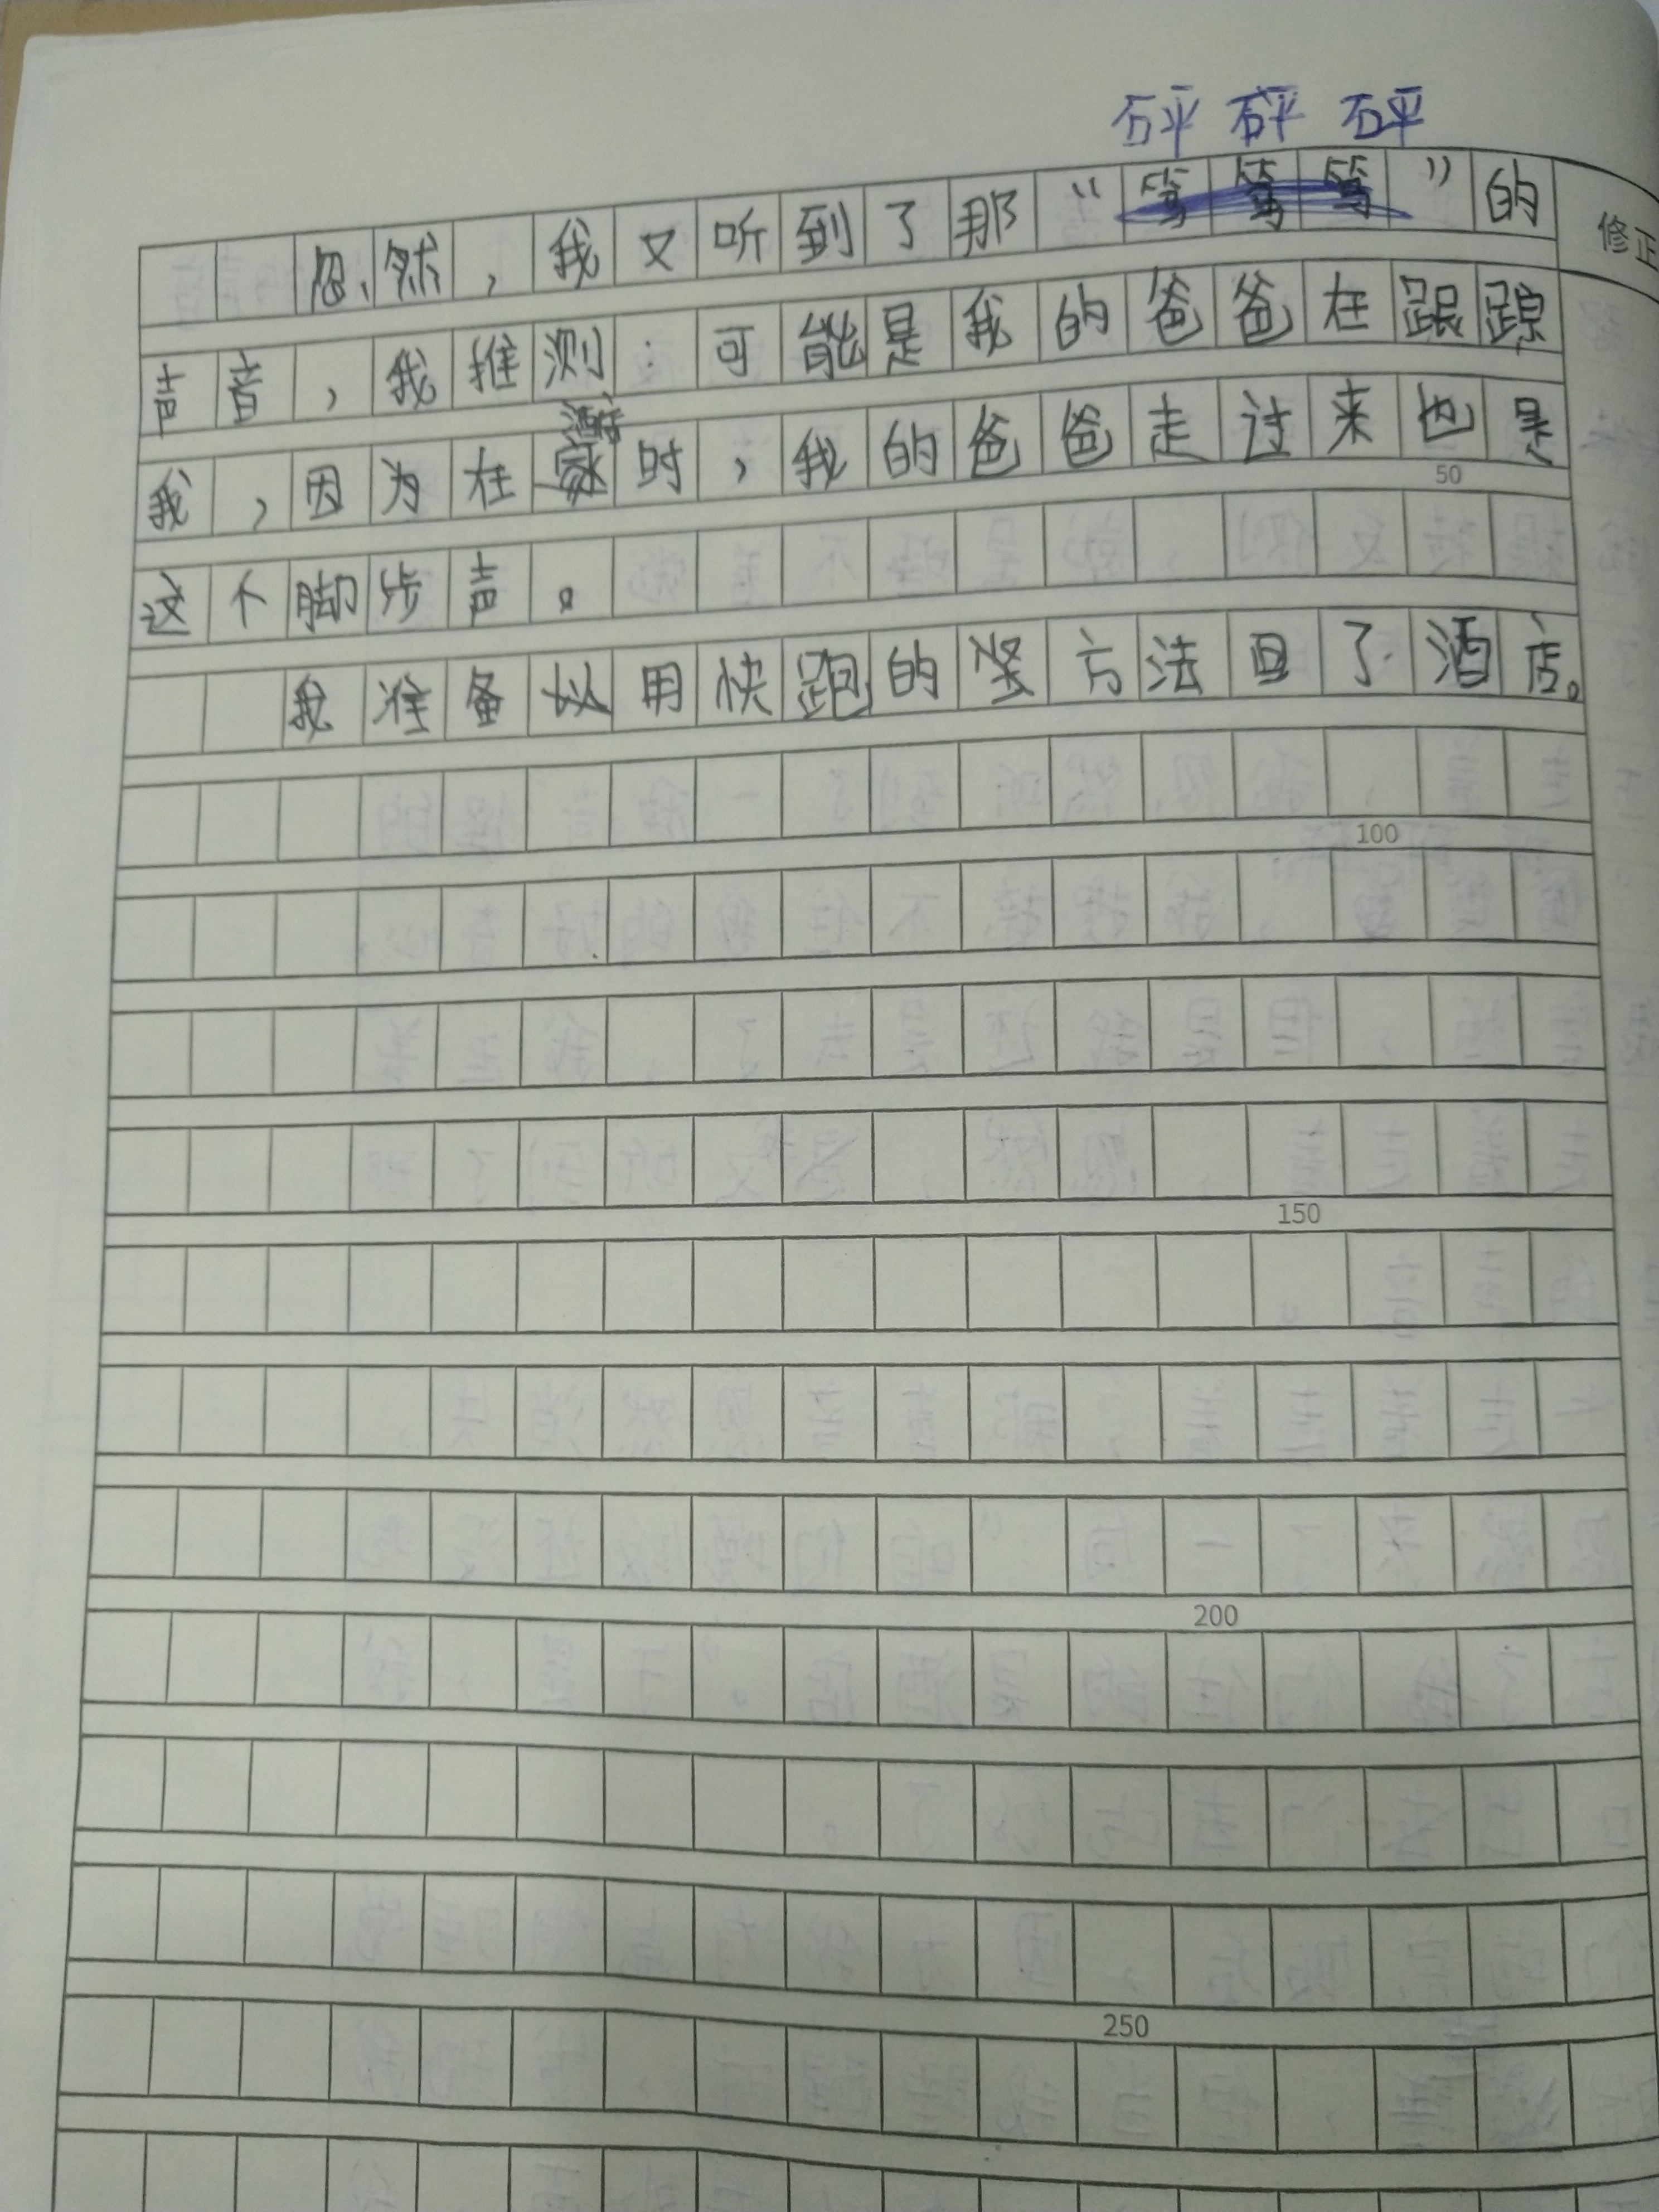 砰砰砰
忽然，我又听到了那“笃笃笃”的
修正
声音，我推测：可能是我的爸爸在跟踪
酒店
我，因为在家时，我的爸爸走过来也是
50
这个脚步声。
我准备以用快跑的方法回了酒店。
100
150
200
250